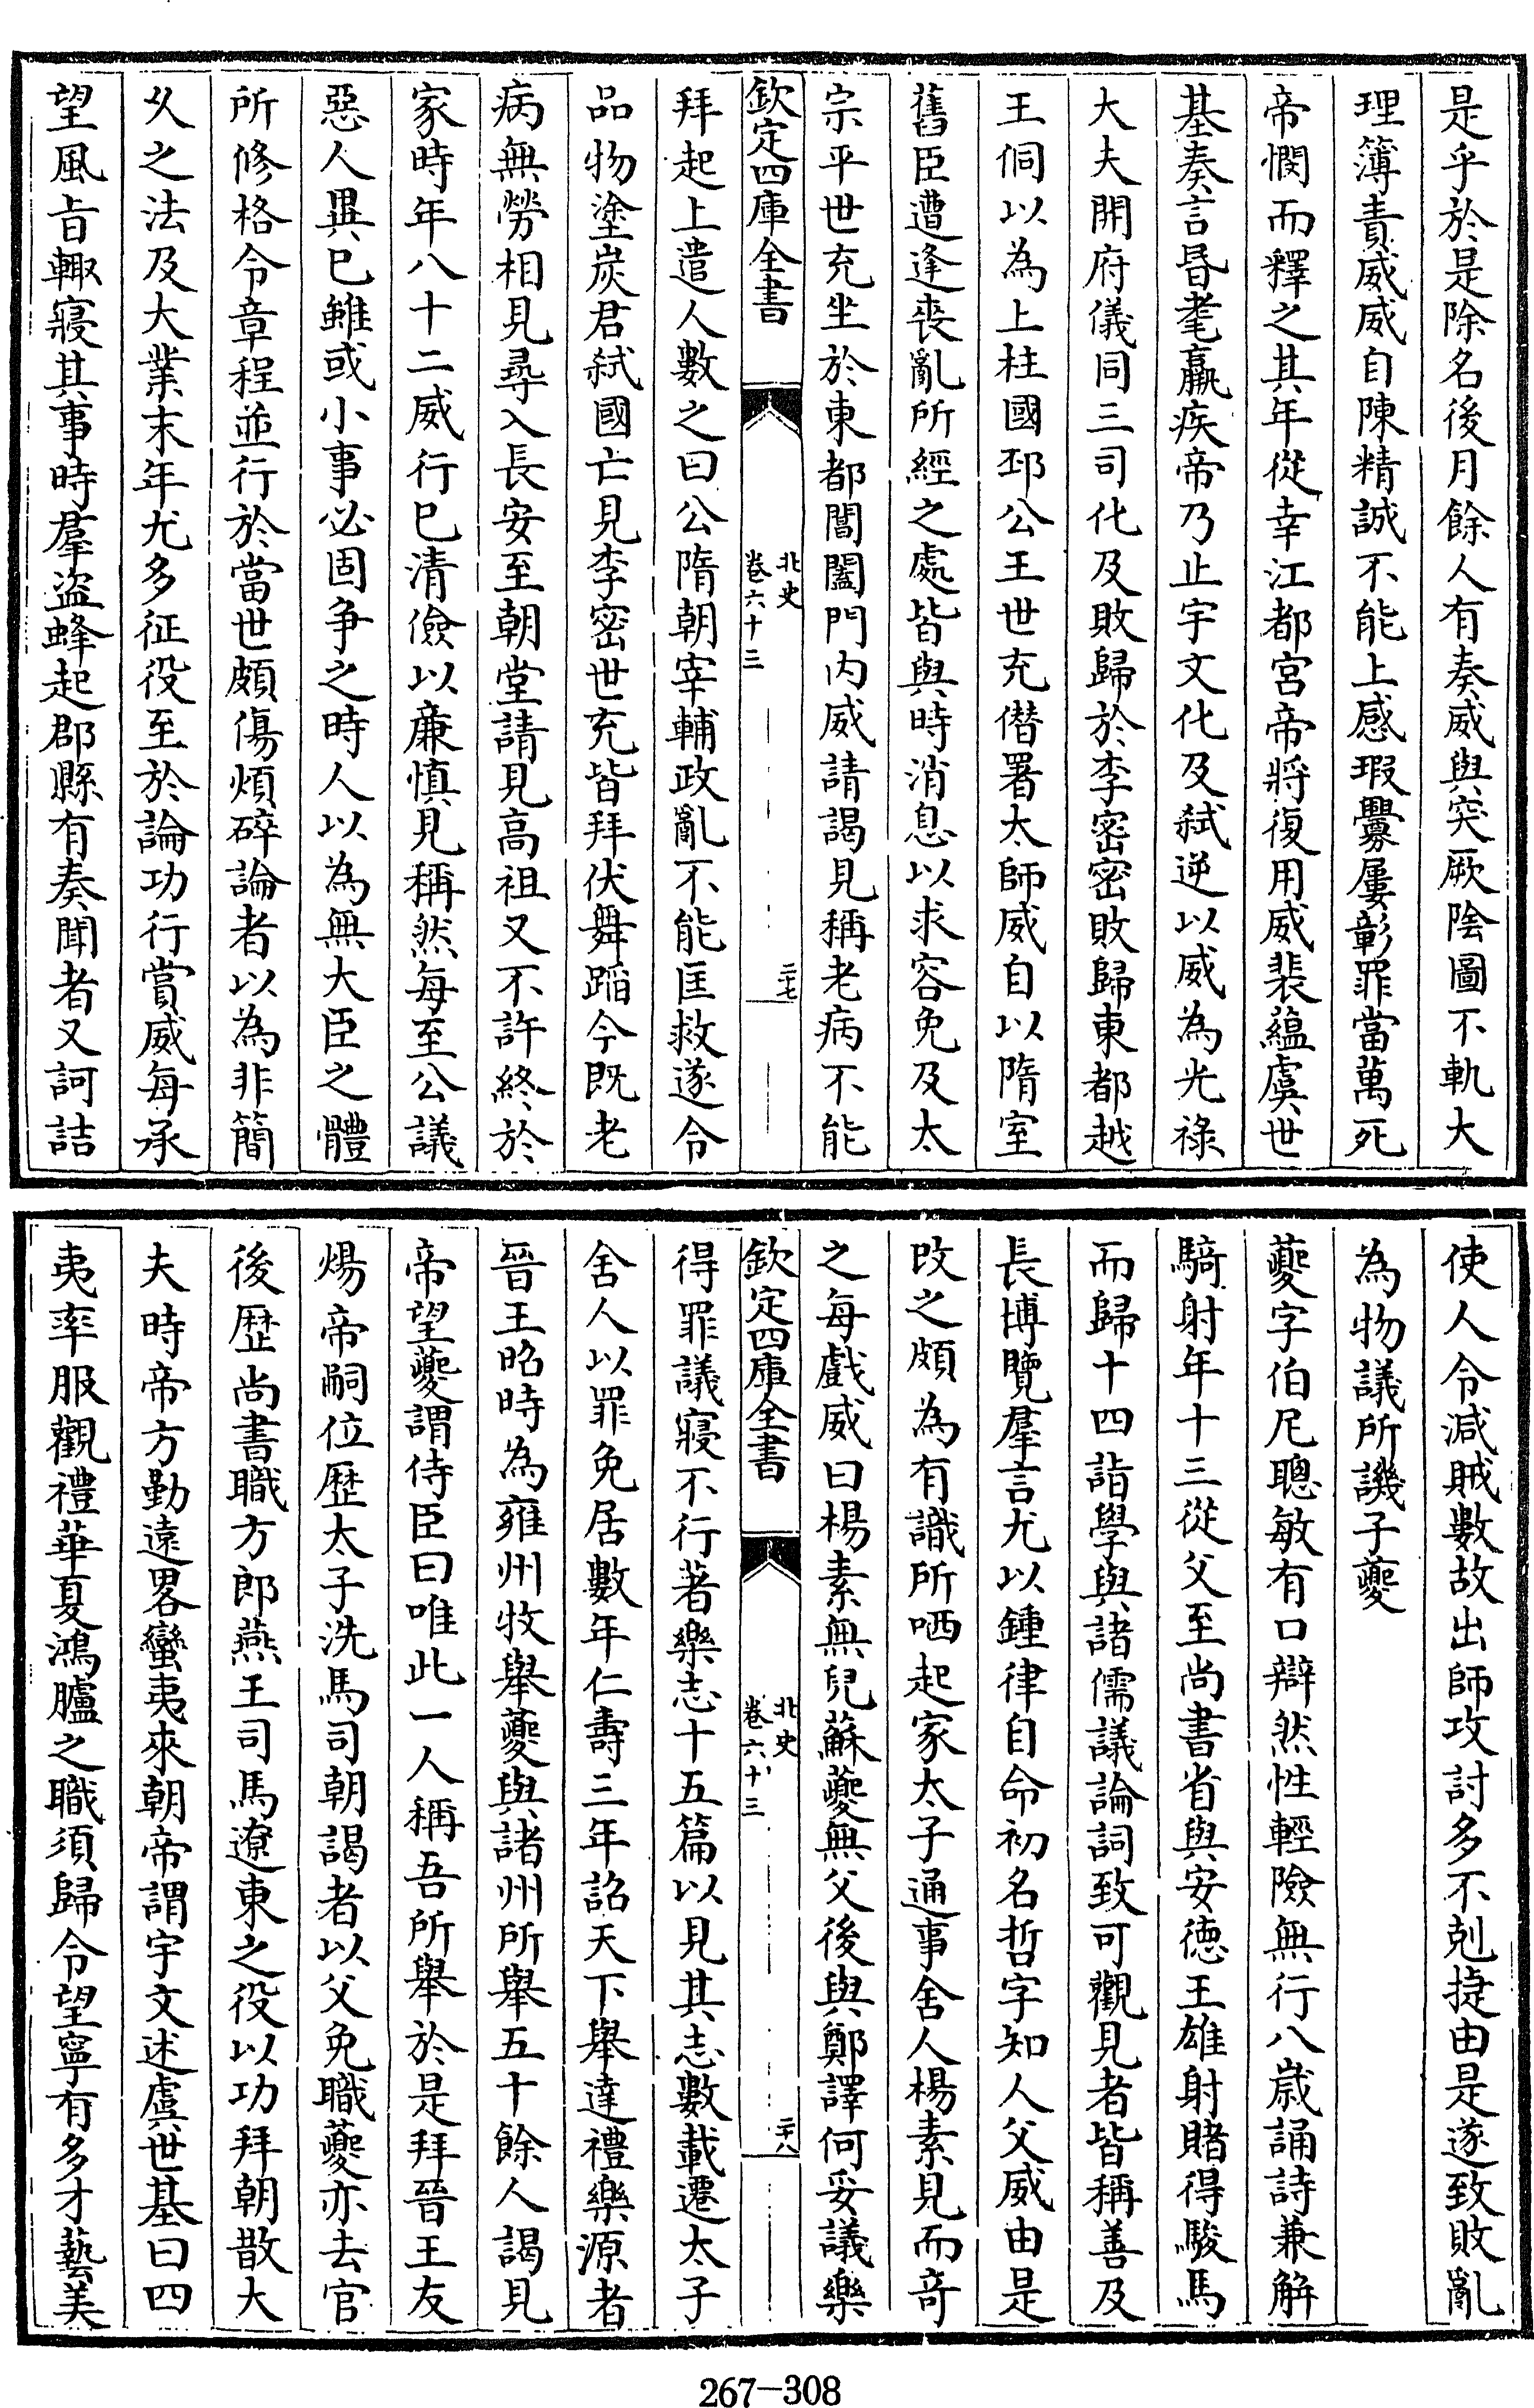 是乎於是除名後月餘人有奏威與突厥陰圖不軌大
理簿責威威自陳精誠不能上感瑕釁屢彰罪當萬死
帝憫而釋之其年從幸江都宮帝將復用威裴蘊虞世
基奏言昬耄羸疾帝乃止宇文化及弑逆以威為光祿
大夫開府儀同三司化及敗歸於李密密敗歸東都越
王侗以為上柱國邳公王世充僭署太師威自以隋室
舊臣遭逢喪亂所經之處皆與時消息以求容免及太
宗平世充坐於東都閶闔門内威請謁見稱老病不能
欽定四庫全書
北史
卷六十三
二十七
拜起上遣人數之曰公隋朝宰輔政亂不能匡救遂令
品物塗炭君弑國亡見李密世充皆拜伏舞蹈今既老
病無勞相見尋入長安至朝堂請見高祖又不許終於
家時年八十二威行已清儉以廉慎見稱然每至公議
惡人異已雖或小事必固争之時人以為無大臣之體
所修格令章程並行於當世頗傷煩碎論者以為非簡
乆之法及大業末年尤多征役至於論功行賞威每承
望風㫖輙寢其事時羣盜蜂起郡縣有奏聞者又訶詰
使人令減賊數故出師攻討多不剋捷由是遂致敗亂
為物議所譏子夔
夔字伯尼聰敏有口辯然性輕險無行八歲誦詩兼解
騎射年十三從父至尚書省與安徳王雄射賭得駿馬
而歸十四詣學與諸儒議論詞致可觀見者皆稱善及
長博覽羣言尤以鍾律自命初名哲字知人父威由是
改之頗為有識所哂起家太子通事舍人楊素見而奇
之每戲威曰楊素無兒蘇夔無父後與鄭譯何妥議樂
欽定四庫全書
北史
卷六十三
二十八
得罪議寢不行著樂志十五篇以見其志數載遷太子
舍人以罪免居數年仁壽三年詔天下舉達禮樂源者
晉王昭時為雍州牧舉夔與諸州所舉五十餘人謁見
帝望夔謂侍臣曰唯此一人稱吾所舉於是拜晉王友
煬帝嗣位歴太子洗馬司朝謁者以父免職夔亦去官
後歴尚書職方郎燕王司馬遼東之役以功拜朝散大
夫時帝方勤遠畧蠻夷來朝帝謂宇文述虞世基曰四
夷率服觀禮華夏鴻臚之職須歸令望寧有多才藝美
267-308